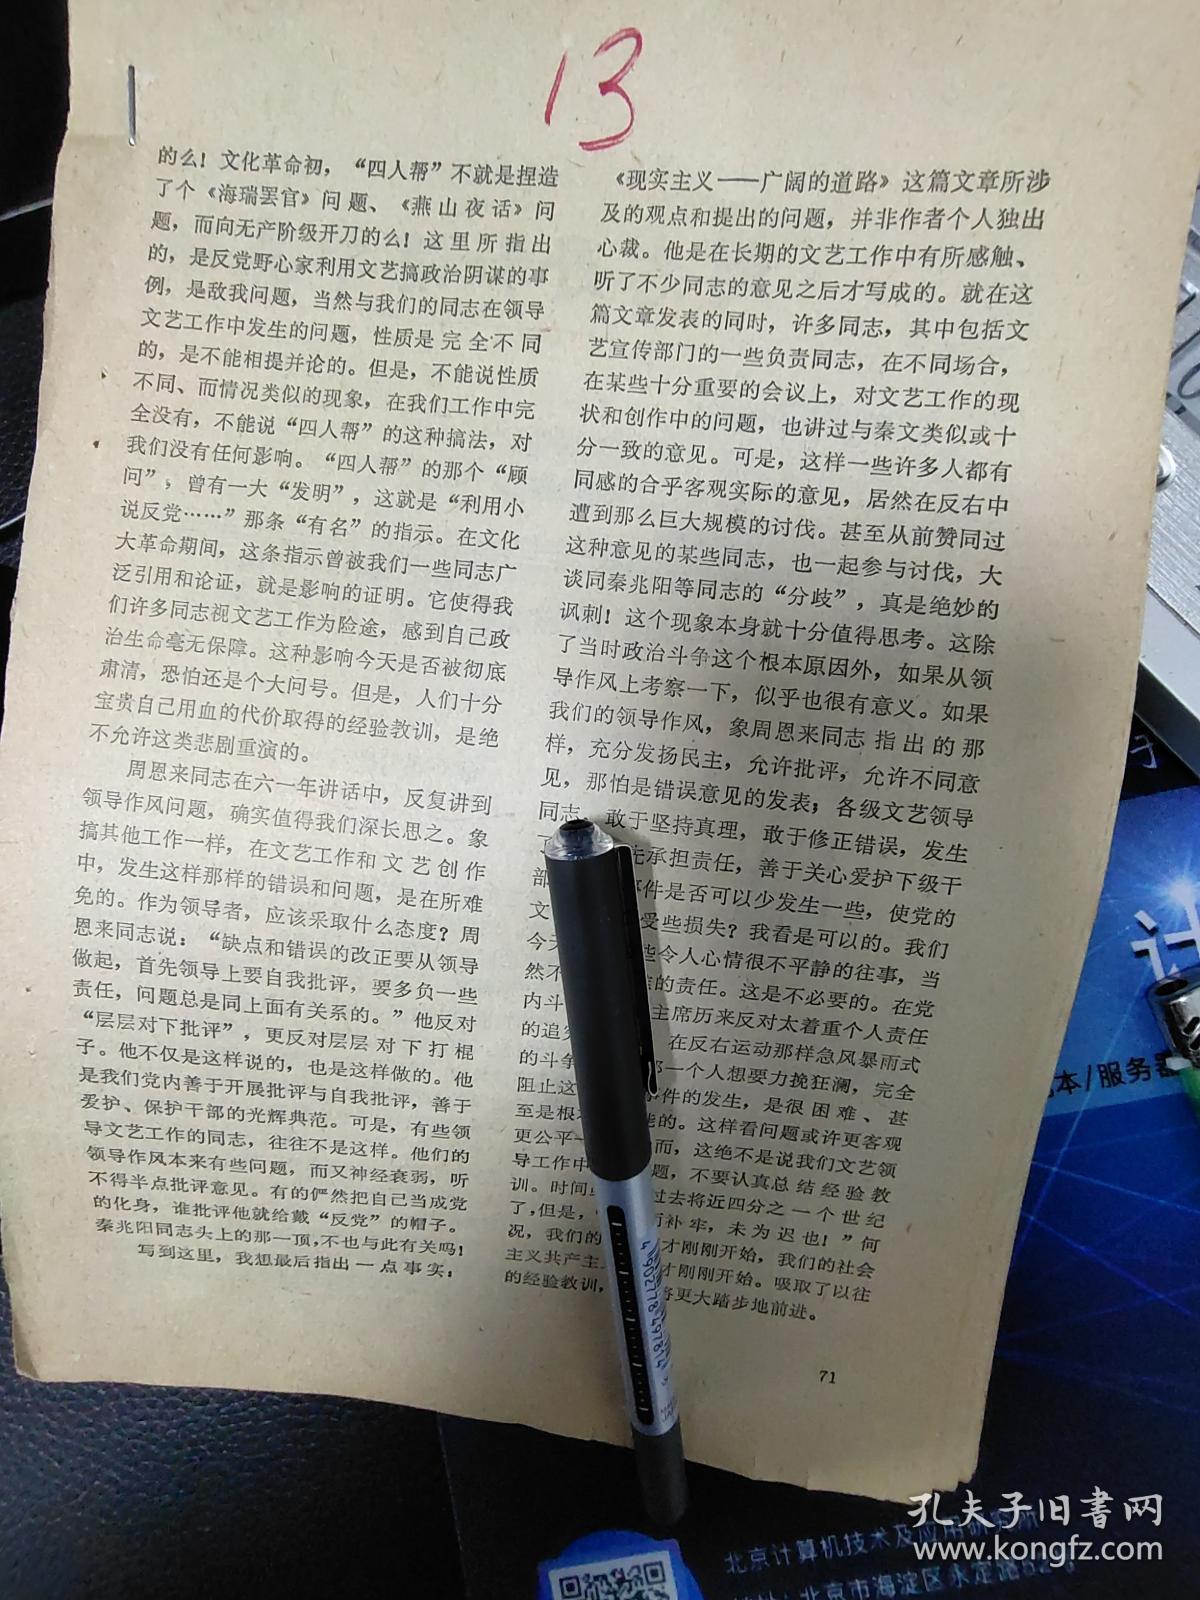 13
的么！文化革命初，“四人帮”不就是捏造
了个《海瑞罢官》问题、《燕山夜话》问
题，而向无产阶级开刀的么！这里所指出
的，是反党野心家利用文艺搞政治阴谋的事
例，是敌我问题，当然与我们的同志在领导
文艺工作中发生的问题，性质是完全不同
的，是不能相提并论的。但是，不能说性质
不同、而情况类似的现象，在我们工作中完
全没有，不能说“四人帮”的这种搞法，对
我们没有任何影响。“四人帮”的那个“顾
问”，曾有一大“发明”，这就是“利用小
说反党……”那条“有名”的指示。在文化
大革命期间，这条指示曾被我们一些同志广
泛引用和论证，就是影响的证明。它使得我
们许多同志视文艺工作为险途，感到自己政
治生命毫无保障。这种影响今天是否被彻底
肃清，恐怕还是个大问号。但是，人们十分
宝贵自己用血的代价取得的经验教训，是绝
不允许这类悲剧重演的。
周恩来同志在六一年讲话中，反复讲到
领导作风问题，确实值得我们深长思之。象
搞其他工作一样，在文艺工作和文艺创作
中，发生这样那样的错误和问题，是在所难
免的。作为领导者，应该采取什么态度？周
恩来同志说：“缺点和错误的改正要从领导
做起，首先领导上要自我批评，要多负一些
责任，问题总是同上面有关系的。”他反对
“层层对下批评”，更反对层层对下打棍
子。他不仅是这样说的，也是这样做的。他
是我们党内善于开展批评与自我批评，善于
爱护、保护干部的光辉典范。可是，有些领
导文艺工作的同志，往往不是这样。他们的
领导作风本来有些问题，而又神经衰弱，听
不得半点批评意见。有的俨然把自己当成党
的化身，谁批评他就给戴“反党”的帽子。
秦兆阳同志头上的那一顶，不也与此有关吗！
写到这里，我想最后指出一点事实：
《现实主义——广阔的道路》这篇文章所涉
及的观点和提出的问题，并非作者个人独出
心裁。他是在长期的文艺工作中有所感触、
听了不少同志的意见之后才写成的。就在这
篇文章发表的同时，许多同志，其中包括文
艺宣传部门的一些负责同志，在不同场合，
在某些十分重要的会议上，对文艺工作的现
状和创作中的问题，也讲过与秦文类似或十
分一致的意见。可是，这样一些许多人都有
同感的合乎客观实际的意见，居然在反右中
遭到那么巨大规模的讨伐。甚至从前赞同过
这种意见的某些同志，也一起参与讨伐，大
谈同秦兆阳等同志的“分歧”，真是绝妙的
讽刺！这个现象本身就十分值得思考。这除
了当时政治斗争这个根本原因外，如果从领
导作风上考察一下，似乎也很有意义。如果
我们的领导作风，象周恩来同志指出的那
样，充分发扬民主，允许批评，允许不同意
见，那怕是错误意见的发表；各级文艺领导
同志，敢于坚持真理，敢于修正错误，发生
了 先承担责任，善于关心爱护下级干
部 件是否可以少发生一些，使党的
文 受些损失？我看是可以的。我们
今天 些令人心情很不平静的往事，当
然不 的责任。这是不必要的。在党
内斗 主席历来反对太着重个人责任
的追究 在反右运动那样急风暴雨式
的斗争 那一个人想要力挽狂澜，完全
阻止这 件的发生，是很困难、甚
至是根本 能的。这样看问题或许更客观
更公平一 而，这绝不是说我们文艺领
导工作中 题，不要认真总结经验教
训。时间 过去将近四分之一个世纪
了，但是， 而补牢，未为迟也！”何
况，我们的 才刚刚开始，我们的社会
主义共产主 才刚刚开始。吸取了以往
的经验教训， 将更大踏步地前进。
71
4902778497814
计
本/服务器
北京计算机技术及应用研究所
北京市海淀区永定路52号
孔夫子旧书网
www.kongfz.com